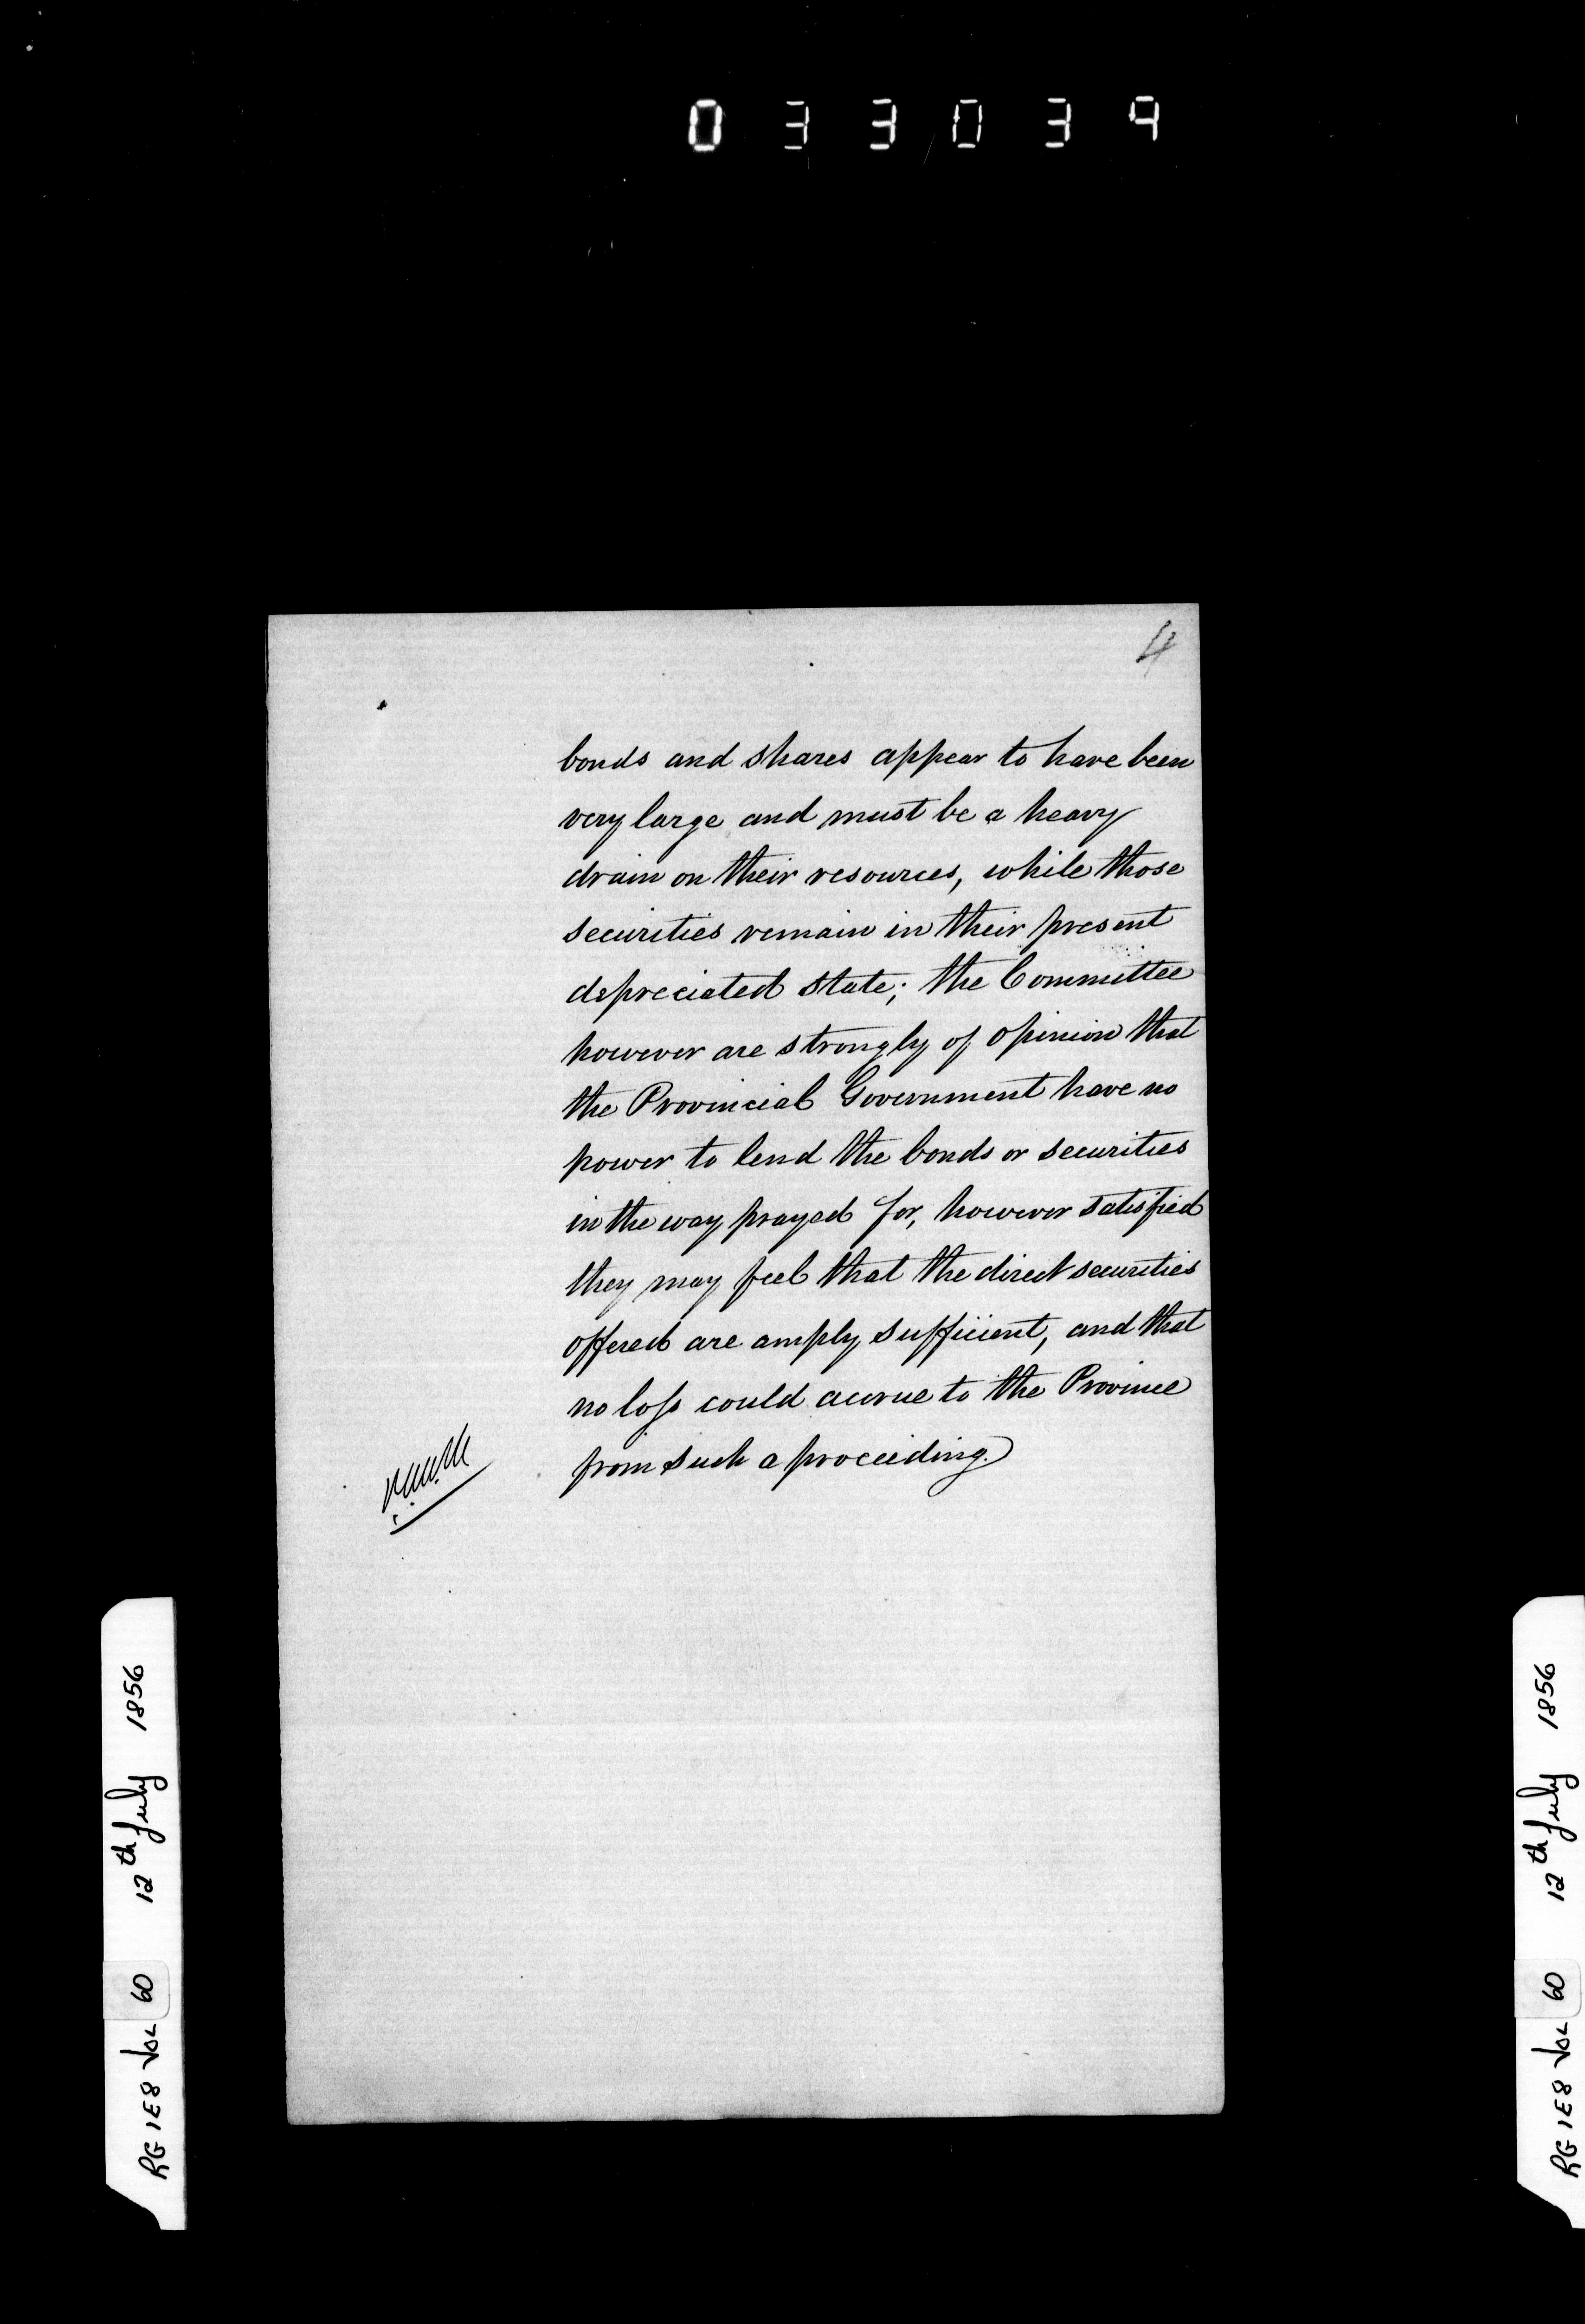 033039
4
bonds and shares appear to have been
very large and must be a heavy
drain on their resources, while those
securities remain in their present
depreciated state; the Committee
however are strongly of opinion that
the Provincial Government have no
power to lend the bonds or securities
in the way prayed for, however satisfied
they may feel that the direct securities
offered are amply sufficient, and that
no loss could accrue to the Province
from such a proceeding.
RG 1E8 Vol 60 12th July 1856
RG 1E8 Vol 60 12th July 1856